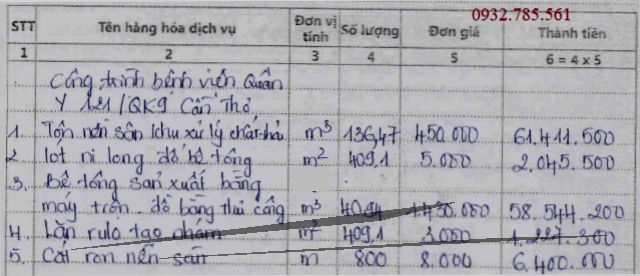 0932.785.561
STT Tên hàng hóa dịch vụ Đơn vị tính Số lượng Đơn giá Thành tiền
1 2 3 4 5 6 = 4 x 5
Công trình bệnh viện Quân
Y 121/QK9 Cần Thơ
1. Tôn nền sân khu xử lý chất thải m³ 136,47 450.000 61.411.500
2 lót ni lông đổ bê tông m² 409.1 5.000 2.045.500
3. Bê tông sản xuất bằng
máy trộn đổ bằng thủ công m³ 40.91 58.544.200
4. Lăn rulo tạo nhám m² 409.1 3.000 1.227.300
5. Cắt ron nền sân m 800 8.000 6.400.000